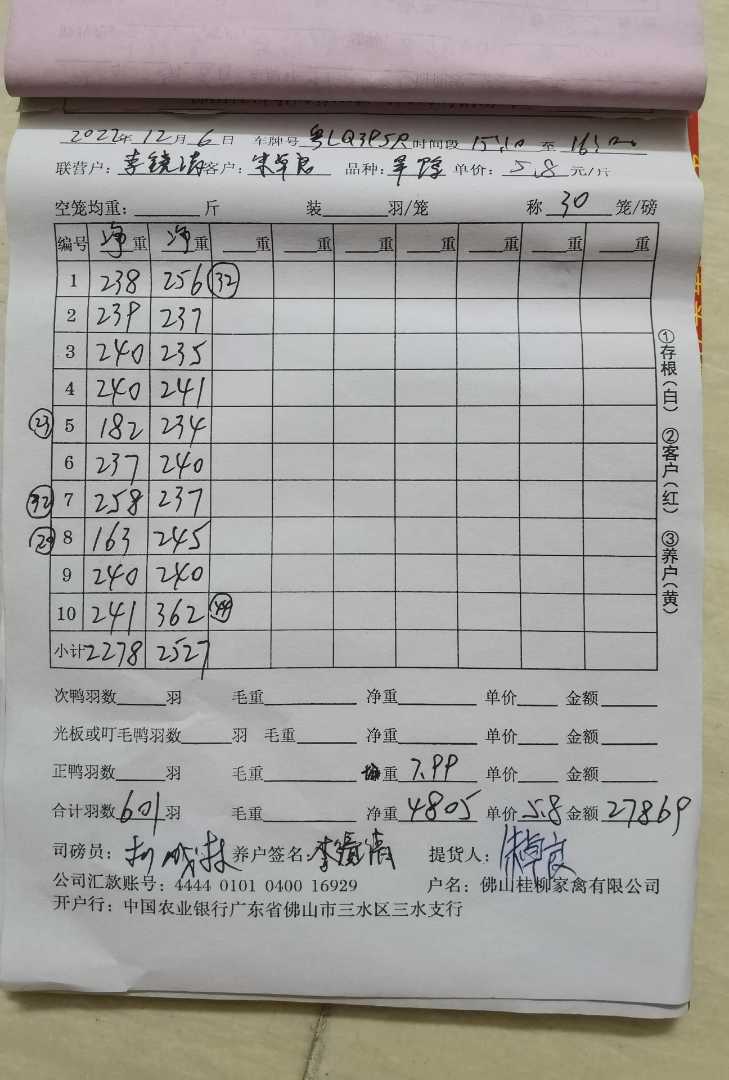 2022年12月6日 车牌号 粤LQ3P5R 时间段 15:10 至 16:00
联营户: 李镜清 客户: 朱卓良 品种: 单价: 5.8 元/斤
空笼均重: 斤 装 羽/笼 称 30 笼/磅
编号 净重 净重 重 重 重 重 重 重 重
1 238 256 32
2 239 237
3 240 235
4 240 241
23 5 182 234
6 237 240
32 7 258 237
8 163 245
9 240 240
10 241 362 44
小计 2278 2527
次鸭羽数 羽 毛重 净重 单价 金额
光板或叮毛鸭羽数 羽 毛重 净重 单价 金额
正鸭羽数 羽 毛重 均重 7.99 单价 金额
合计羽数 601 羽 毛重 净重 4805 单价 5.8 金额 27869
司磅员: 养户签名: 李镜清 提货人: 朱卓良
公司汇款账号: 4444 0101 0400 16929 户名: 佛山桂柳家禽有限公司
开户行: 中国农业银行广东省佛山市三水区三水支行
①存根(白) ②客户(红) ③养户(黄)